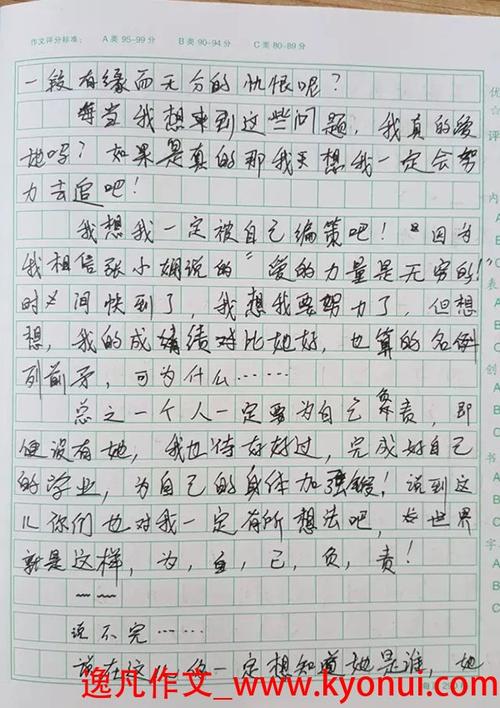 作文评分标准： A类 95-99分 B类 90-94分 C类 80-89分
一段有缘而无分的仇恨呢？
每当我想来到这些问题，我真的爱
她吗？如果是真的那我想我一定会努
力去追吧！
我想我一定被自己编策吧！“因为
我相信张小娴说的“爱的力量是无穷的！
时间快到了，我想我要努力了，但想
想，我的成绩对比她好，也算的名例
列前矛，可为什么……
总之一个人一定要为自己负责，即
便没有她，我也得好好过，完成好自己
的学业，为自己的身体加强锻！说到这
儿你们也对我一定有所想法吧，世界
就是这样，为，自，己，负，责！
——
说不完……
说在这儿，你一定想知道她是谁，她
优
评
内
A
B
C
表
A
B
C
创
A
B
C
书
A
B
C
字
A
B
C
逸凡作文_www.kyonui.com